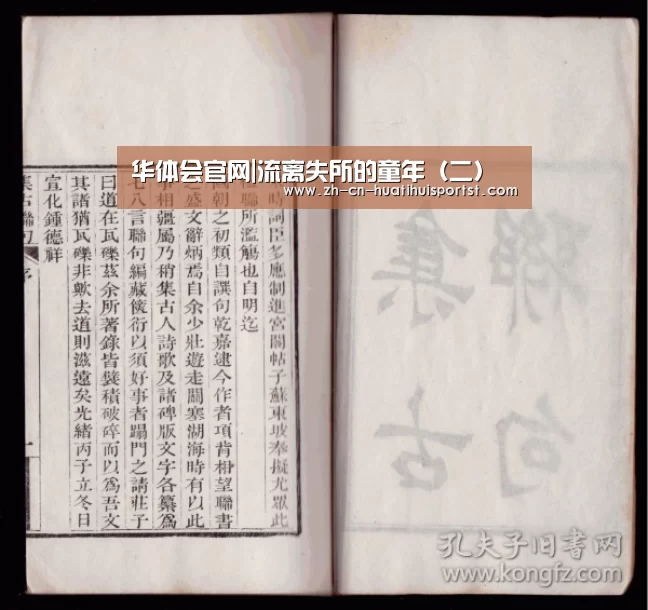 華体会官网|流离失所的童年（二）
www.zh-cn-huatihuisportst.com
時詞臣多應制進宮閣帖子蘇東坡奉擬尤眾此
聯所濫觴也自明迄
朝之初類自譔句乾嘉逮今作者項背相望聯書
之盛文辭炳焉自余少壯遊走關塞湖海時有以此
相疆屬乃稍集古人詩歌及諸碑版文字各纂為
七八言聯句編藏篋衍以須好事者蹋門之請莊子
曰道在瓦礫茲余所著錄皆襞積破碎而以為吾文
其諸猶瓦礫非歟去道則滋遠矣光緒丙子立冬日
宣化鍾德祥
集古聯句
序
一
聯集
句古
孔夫子旧书网
www.kongfz.com